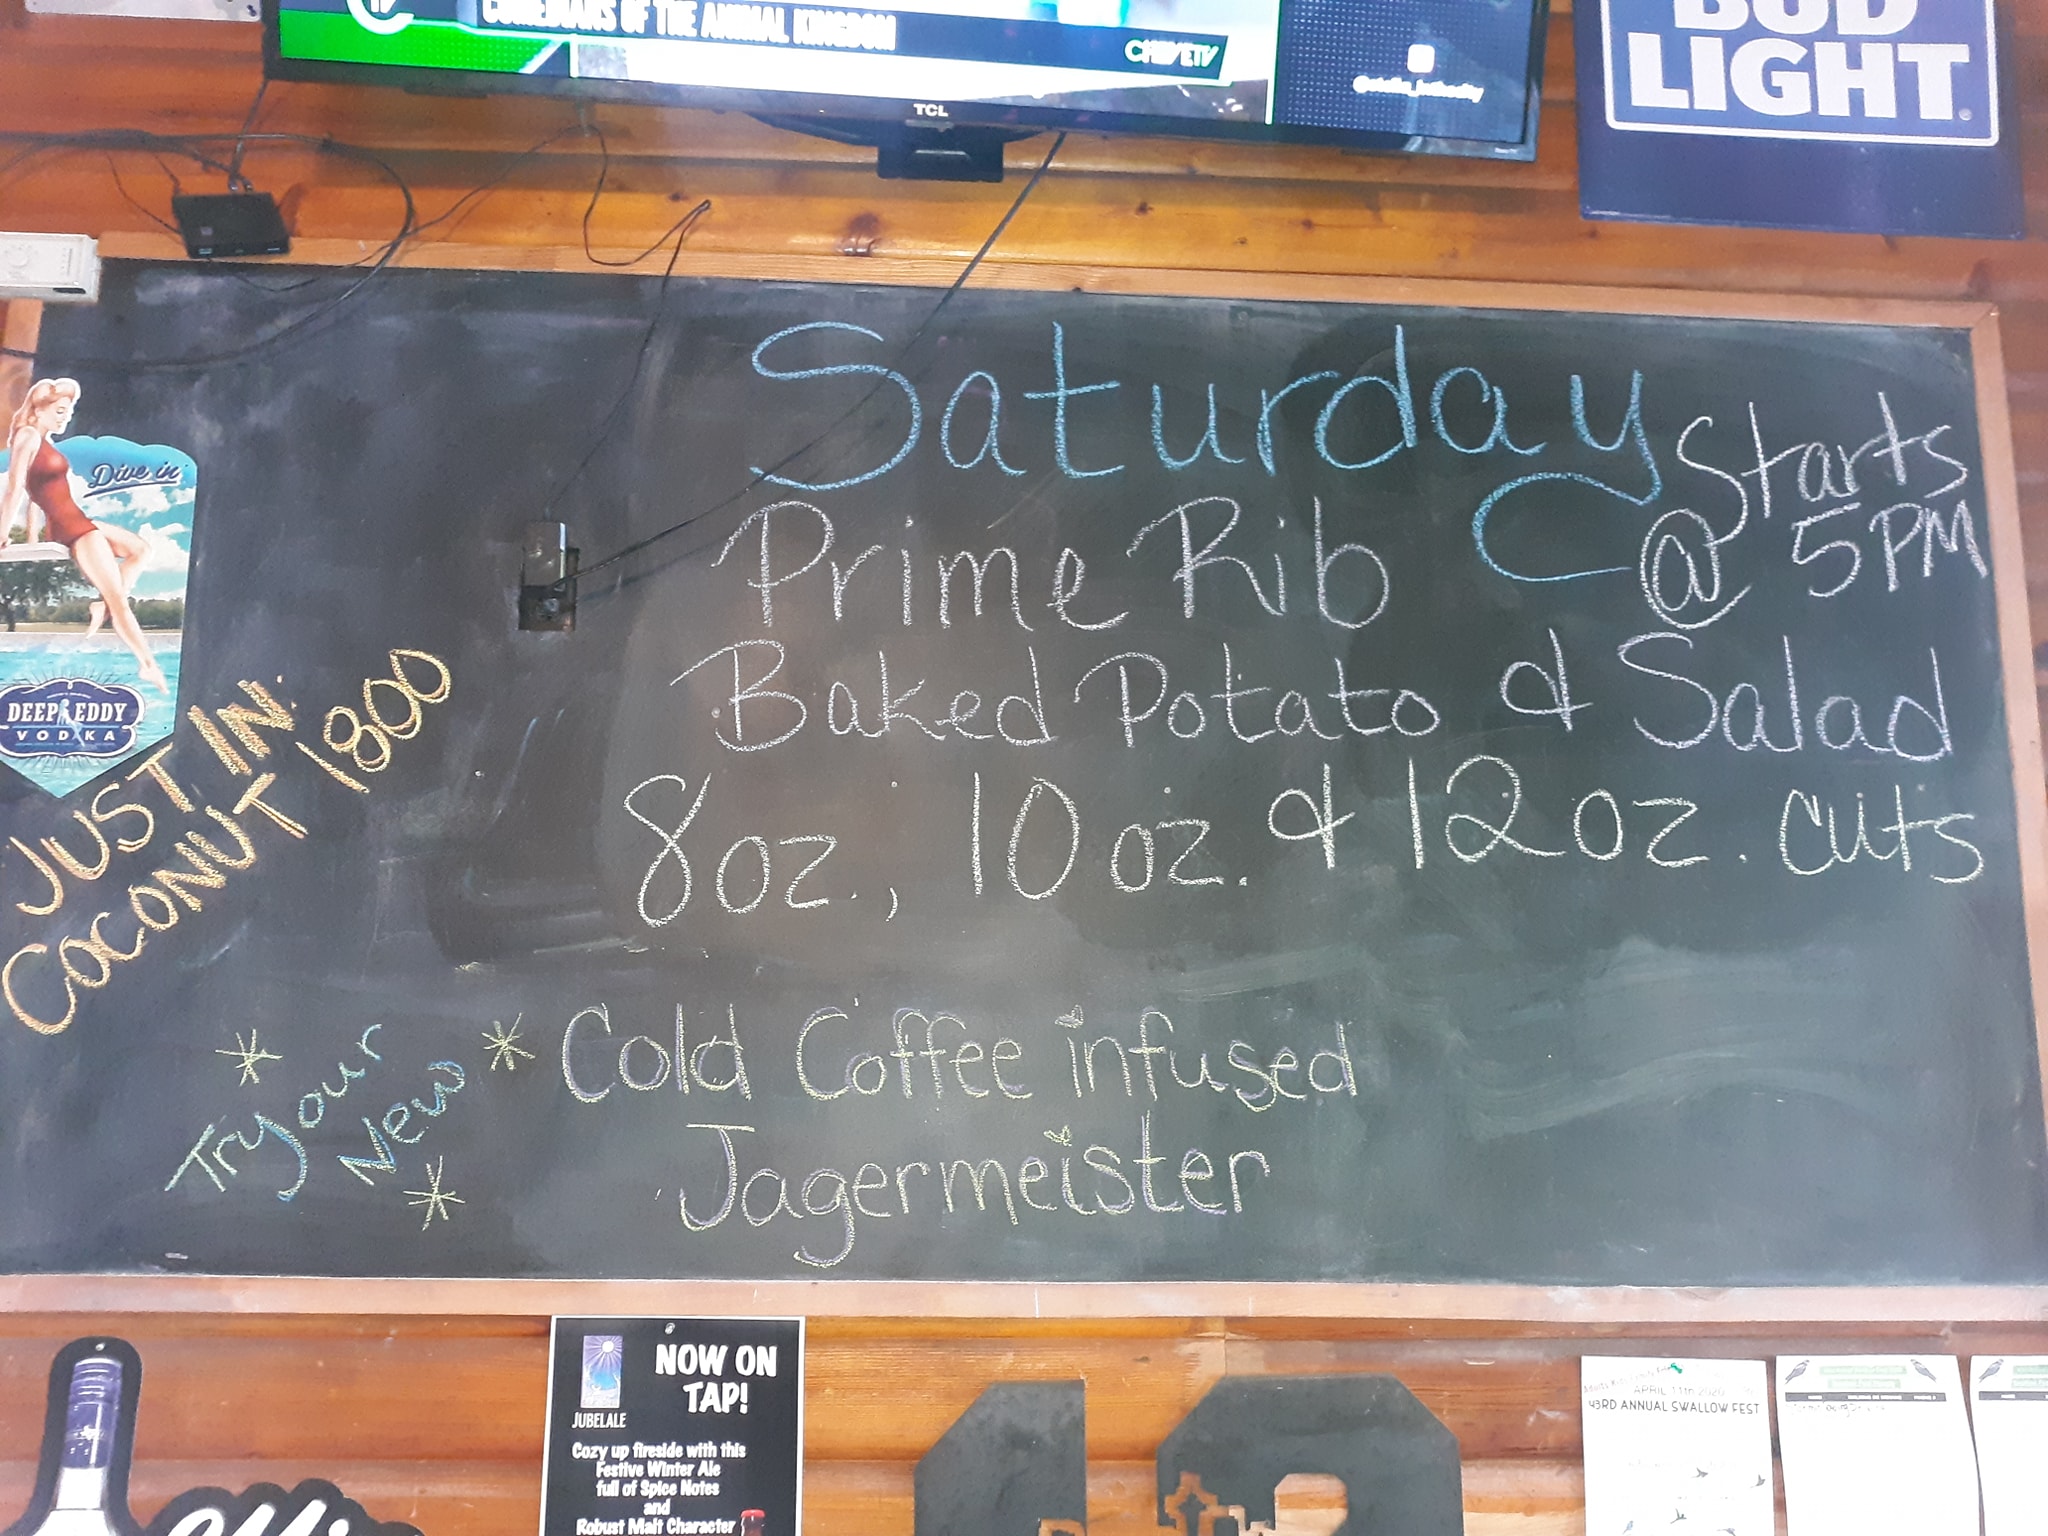 COMEDIANS OF THE ANIMAL KINGDOM
CHIVETV
TCL
BUD
LIGHT
Saturday
Starts
@ 5PM
Prime Rib
Baked Potato & Salad
8oz., 10oz. & 12oz. cuts
Dive in
DEEP EDDY
VODKA
JUST IN:
COCONUT 1800
* Try our
New *
* Cold Coffee infused
Jagermeister
NOW ON
TAP!
JUBELALE
Cozy up fireside with this
Festive Winter Ale
full of Spice Notes
and
Robust Malt Character
APRIL 11th 2020
43RD ANNUAL SWALLOW FEST